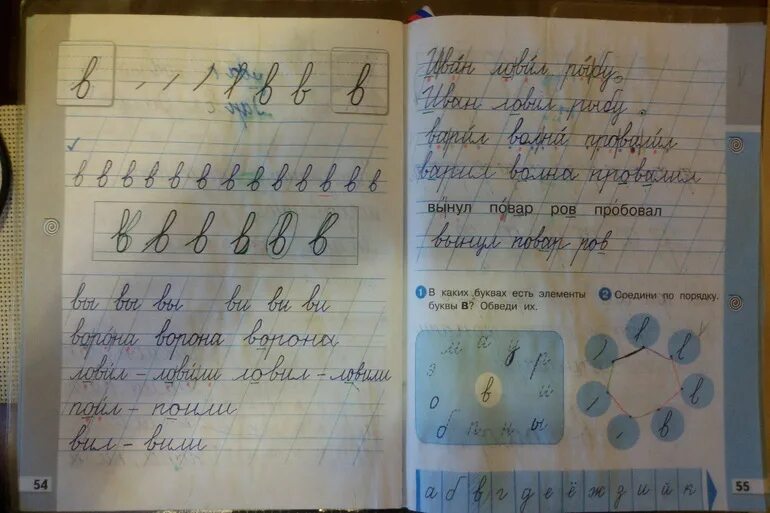 в в в в в
в в в в в в в в в в в в в
в в в в в в
вы вы вы ви ви ви
ворона ворона ворона
ловил – ловили ловил – ловили
поил – поили
вил – вили
54
Ива́н лови́л ры́бу.
Иван ловил рыбу.
вари́л волна́ провали́л
варил волна провалил
вы́нул по́вар ров пробовал
вынул повар ров
1 В каких буквах есть элементы
буквы В? Обведи их.
2 Соедини по порядку.
и а у р
э в и
о б п н ы
в в в в
а б в г д е ё ж з и й к
55